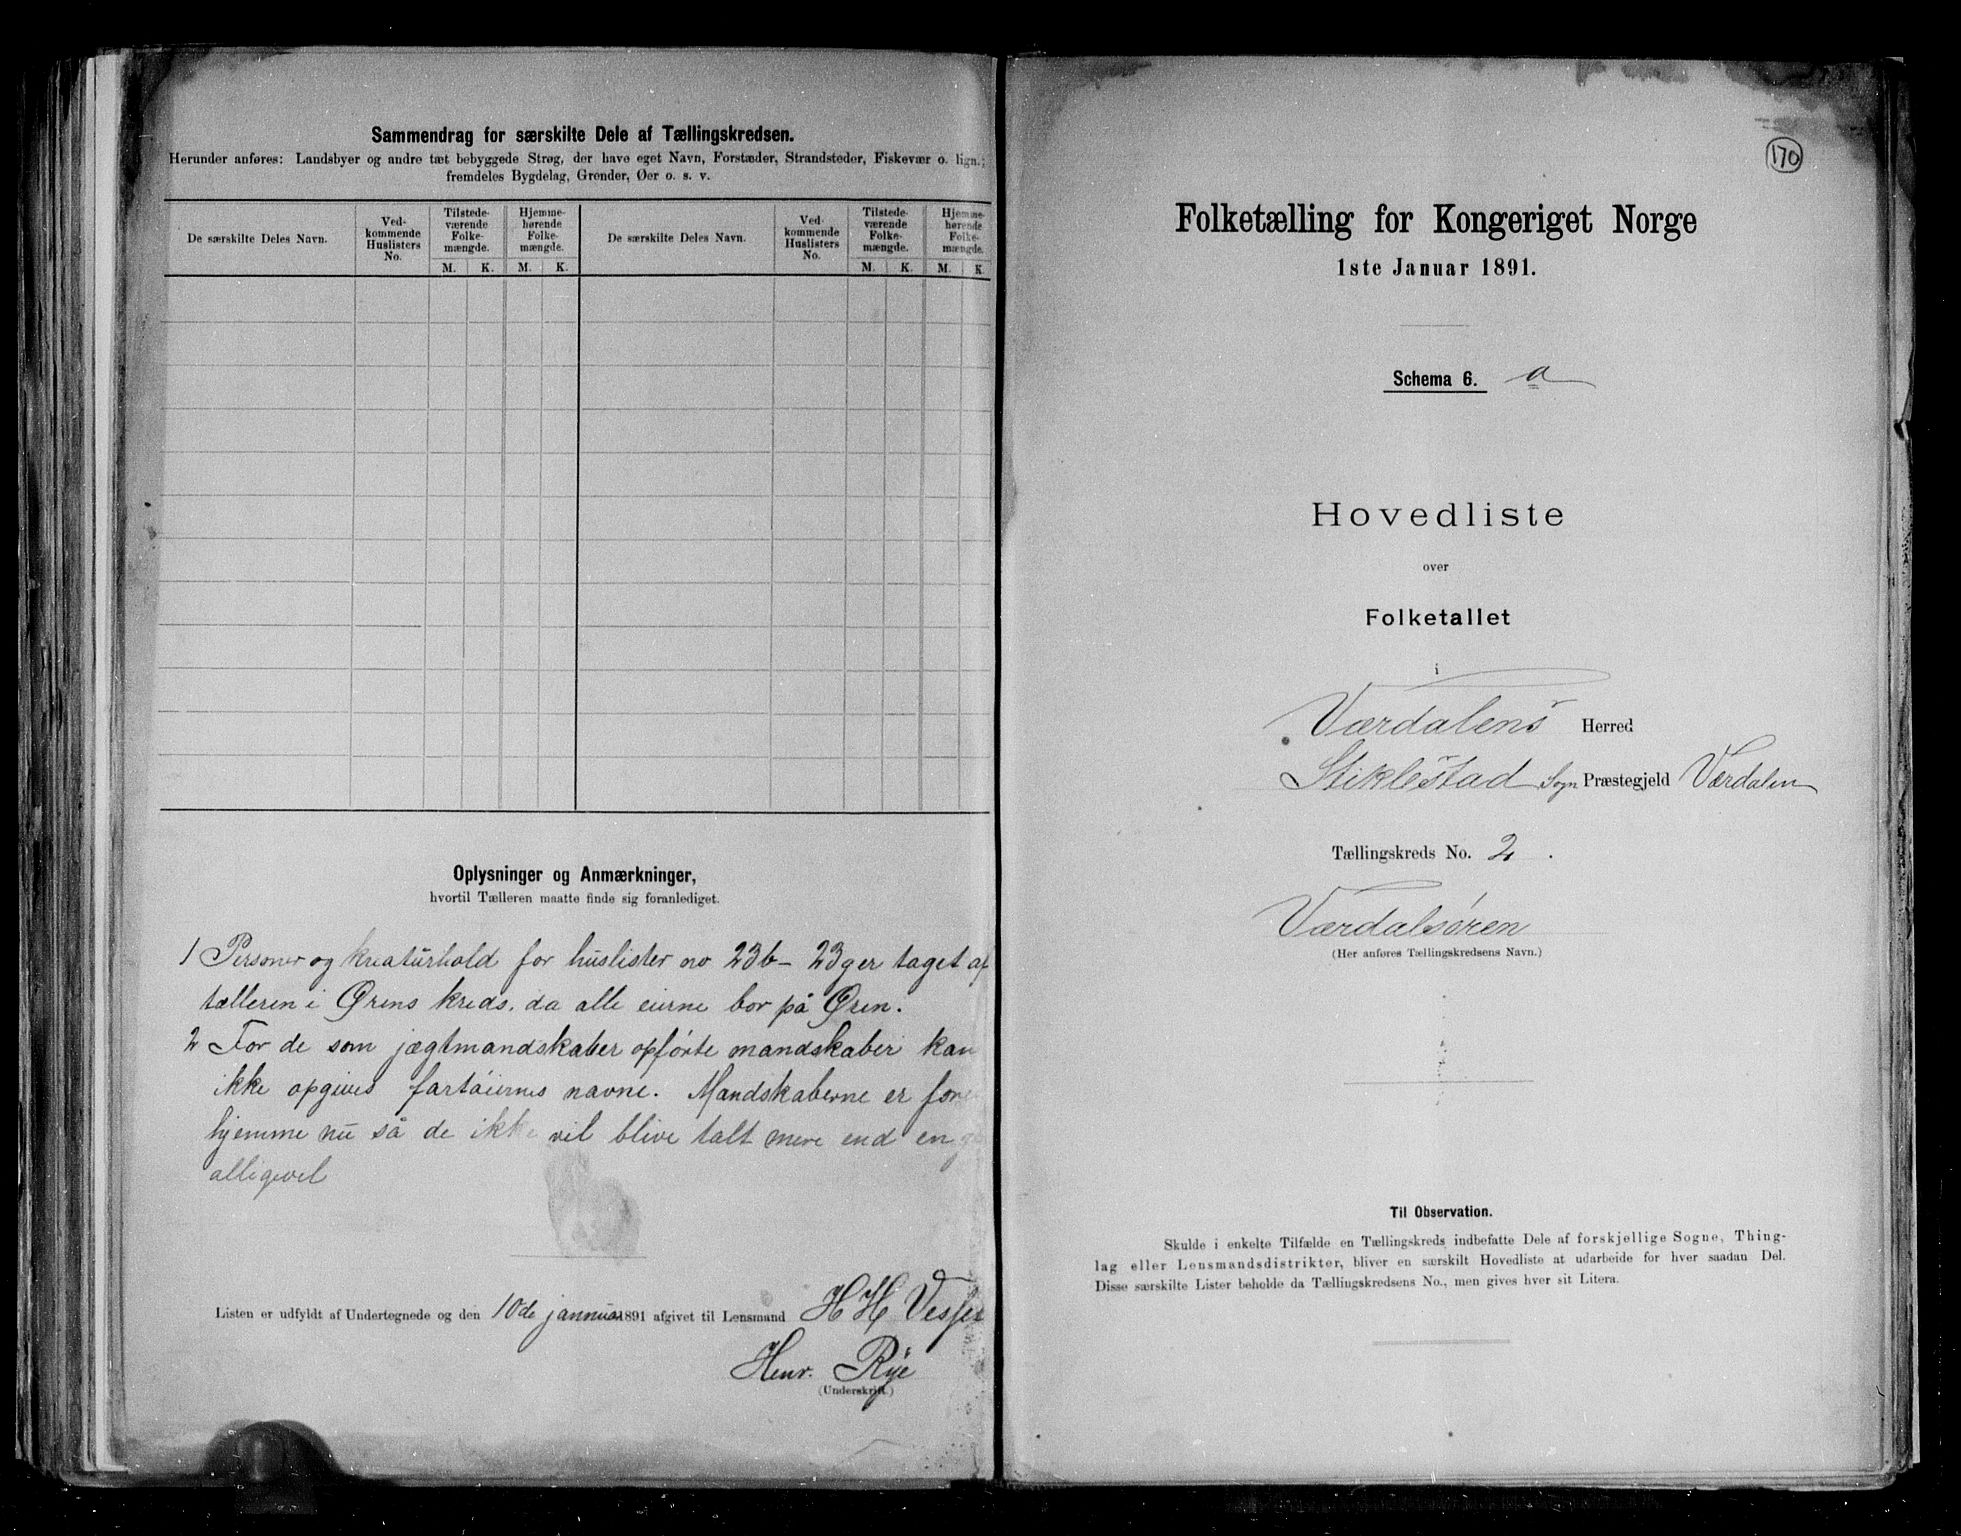 Sammendrag for særskilte Dele af Tællingskredsen.
Herunder anføres: Landsbyer og andre tæt bebyggede Strøg, der have eget Navn, Forstæder, Strandsteder, Fiskevær o. lign.;
fremdeles Bygdelag, Grender, Øer o. s. v.
De særskilte Deles Navn.
Ved-
kommende
Huslisters
No.
Tilstede-
værende
Folke-
mængde.
M. K.
Hjemme-
hørende
Folke-
mængde.
M. K.
De særskilte Deles Navn.
Ved-
kommende
Huslisters
No.
Tilstede-
værende
Folke-
mængde.
M. K.
Hjemme-
hørende
Folke-
mængde.
M. K.
Oplysninger og Anmærkninger,
hvortil Tælleren maatte finde sig foranlediget.
1 Personer og kreaturhold for huslister no 23b – 23g er taget af
tælleren i Ørens kreds, da alle eierne bor på Øren.
2 For de som jægtmandskaber opførte mandskaber kan
ikke opgives fartøiernes navne. Mandskaberne er
hjemme nu så de ikke vil blive talt mere end en
alligevel
Listen er udfyldt af Undertegnede og den 10de januar 1891 afgivet til Lensmand H H Vessel
Henr. Rye
(Underskrift.)
170
Folketælling for Kongeriget Norge
1ste Januar 1891.
Schema 6. a
Hovedliste
over
Folketallet
i
Værdalens Herred
Stiklestad Sogn Præstegjeld Værdalen
Tællingskreds No. 2.
Værdalsøren
(Her anføres Tællingskredsens Navn.)
Til Observation.
Skulde i enkelte Tilfælde en Tællingskreds indbefatte Dele af forskjellige Sogne, Thing-
lag eller Lensmandsdistrikter, bliver en særskilt Hovedliste at udarbeide for hver saadan Del.
Disse særskilte Lister beholde da Tællingskredsens No., men gives hver sit Litera.